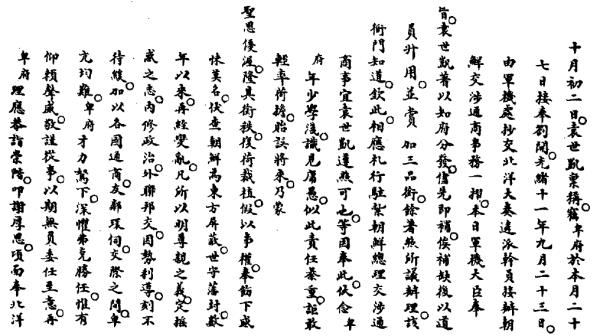 十月初二日。袁世凱稟稱。竊卑府於本月二十
七日接奉劄開。光緒十一年九月二十三日。
由軍機處抄交北洋大臣奏遴派幹員接辦朝
鮮交涉通商事務一摺。本日軍機大臣奉
旨。袁世凱著以知府分發。儘先即補。俟補缺後以道
員升用。並賞加三品銜。餘著照所議辦理。該
衙門知道。欽此。相應札行駐紮朝鮮總理交涉通
商事宜袁世凱遵照可也。等因。奉此。伏念卑
府年少學淺。識見庸愚。似此責任綦重。詎敢
輕率荷擔。貽誤將來。乃蒙
聖恩優渥。隆其銜秩。復荷栽植。假以事權。奉飭下感
悚莫名。伏查朝鮮為東方屏蔽。世守藩封。數
年以來。再經變亂。凡所以明尊親之義。定搖
惑之志。內修政治。外聯邦交。因勢利導。刻不
待緩。加以各國通商。友鄰環伺。交際之間。卑
亢均難。卑府才力駑下。深懼弗克勝任。惟有
仰賴聲威。敬謹從事。以期無負委任至意。再
卑府理應恭詣崇階。叩謝厚恩。頃面奉北洋